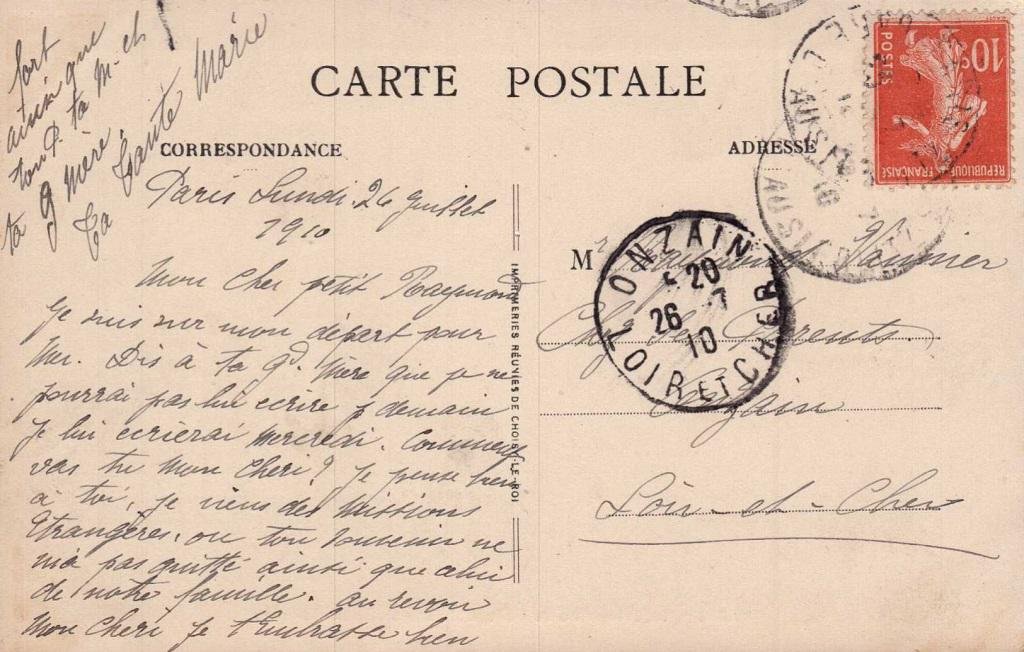 CARTE POSTALE
CORRESPONDANCE
ADRESSE
Paris Lundi 26 Juillet
1910
Mon cher petit Raymond
Je suis sur mon départ pour
Mer. Dis à ta gd. Mère que je ne
pourrai pas lui ecrire demain
je lui ecrierai Mercredi. Comment
vas tu Mon cheri? Je pense bien
à toi, je viens des Missions
Etrangères, ou ton souvenir ne
m'a pas quitté ainsi que celui
de notre famille. au revoir
Mon cheri je t'embrasse bien
fort
ainsi que
ton P. ta M. et
ta g Mère
ta tante Marie
IMPRIMERIES RÉUNIES DE CHOISY-LE-ROI
Mr Raymond
Chez ses Parents
Onzain
Loir-et-Cher
ONZAIN
5 20
26 7
10
LOIR ET CHER
POSTES
10c
REPUBLIQUE FRANÇAISE